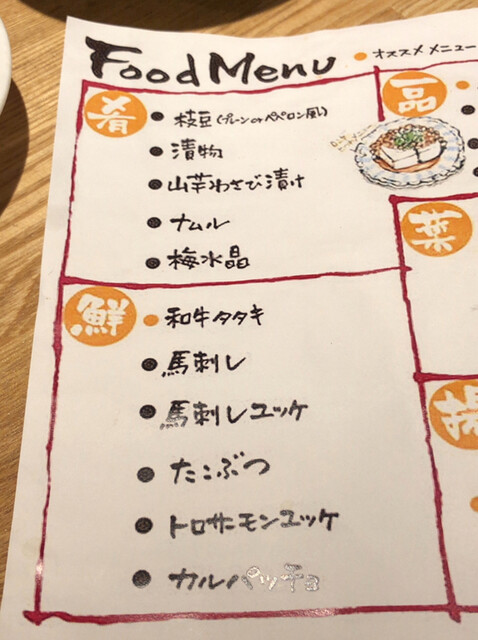 Food Menu
オススメメニュー
肴
枝豆(プレーン or ペペロン風)
漬物
山芋わさび漬け
ナムル
梅水晶
鮮
和牛タタキ
馬刺し
馬刺しユッケ
たこぶつ
トロサーモンユッケ
カルパッチョ
一品
葉
揚